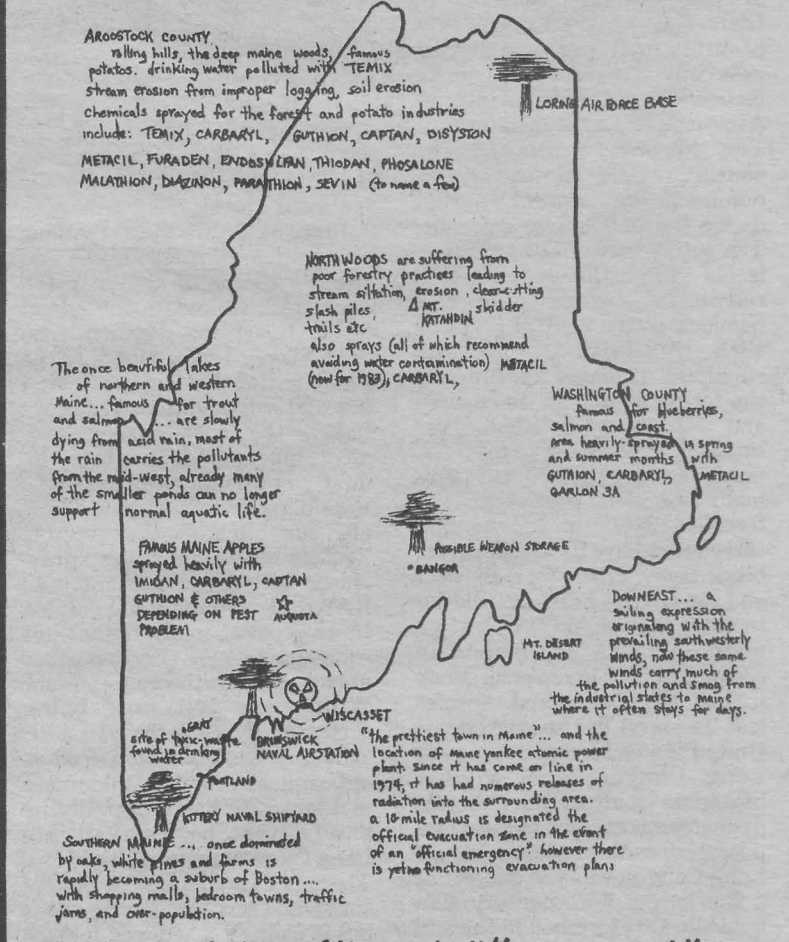 AROOSTOCK COUNTY
rolling hills, the deep maine woods, famous
potatos. drinking water polluted with TEMIX
stream erosion from improper logging, soil erosion
chemicals sprayed for the forest and potato industries
include: TEMIX, CARBARYL, GUTHION, CAPTAN, DISYSTON
METACIL, FURADEN, ENDOSULFAN, THIODAN, PHOSALONE
MALATHION, DIAZINON, PARATHION, SEVIN (to name a few)
LORING AIR FORCE BASE
NORTH WOODS are suffering from
poor forestry practices leading to
stream siltation, erosion, clear-cutting
slash piles, skidder
trails etc
also sprays (all of which recommend
avoiding water contamination) METACIL
(now for 1983), CARBARYL,
MT.
KATAHDIN
The once beautiful lakes
of northern and western
Maine... famous for trout
and salmon... are slowly
dying from acid rain, most of
the rain carries the pollutants
from the mid-west, already many
of the smaller ponds can no longer
support normal aquatic life.
WASHINGTON COUNTY
famous for blueberries,
salmon and coast.
area heavily sprayed in spring
and summer months with
GUTHION, CARBARYL, METACIL
GARLON 3A
POSSIBLE WEAPON STORAGE
BANGOR
FAMOUS MAINE APPLES
sprayed heavily with
IMIDAN, CARBARYL, CAPTAN
GUTHION & OTHERS
DEPENDING ON PEST
PROBLEM
AUGUSTA
DOWNEAST... a
sailing expression
originating with the
prevailing southwesterly
winds, now these same
winds carry much of
the pollution and smog from
the industrial states to maine
where it often stays for days.
MT. DESERT
ISLAND
WISCASSET
"the prettiest town in Maine"... and the
location of maine yankee atomic power
plant. since it has come on line in
1974, it has had numerous releases of
radiation into the surrounding area.
a 10-mile radius is designated the
official evacuation zone in the event
of an "official emergency". however there
is yet no functioning evacuation plans
GRAY
site of toxic-waste
found in drinking
water
BRUNSWICK
NAVAL AIRSTATION
PORTLAND
KITTERY NAVAL SHIPYARD
SOUTHERN MAINE... once dominated
by oaks, white pines and farms is
rapidly becoming a suburb of Boston...
with shopping malls, bedroom towns, traffic
jams, and over-population.